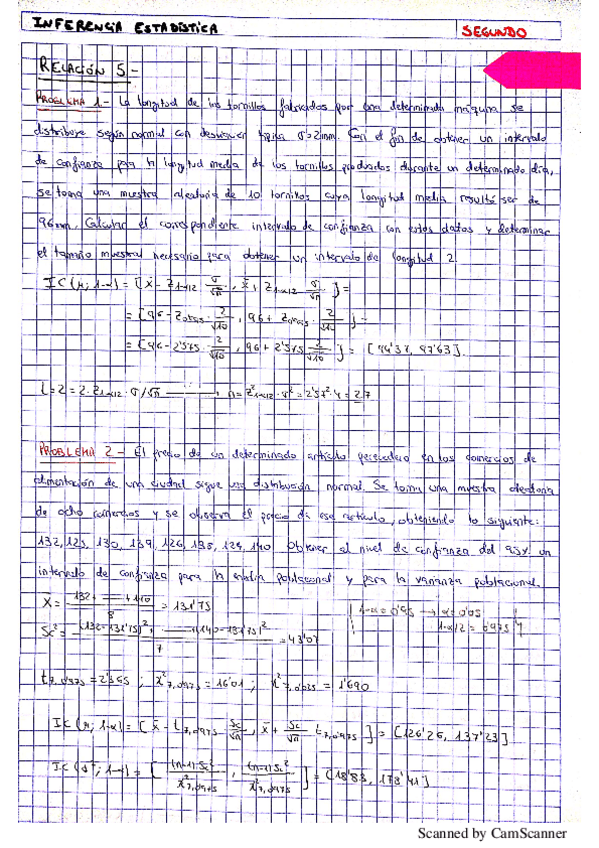 INFERENCIA ESTADÍSTICA
SEGUNDO
RELACIÓN 5-
PROBLEMA 1- La longitud de los tornillos fabricados por una determinada máquina se
distribuye según normal con desviación típica σ=2mm. Con el fin de obtener un intervalo
de confianza para la longitud media de los tornillos producidos durante un determinado día,
se toma una muestra aleatoria de 10 tornillos cuya longitud media resultó ser de
96mm. Calcular el correspondiente intervalo de confianza con estos datos y determinar
el tamaño muestral necesario para obtener un intervalo de longitud 2.
IC(μ; 1-α) = [x̄ - Z1-α/2 σ/√n, x̄ + Z1-α/2 σ/√n] =
= [96 - Z0'995 · 2/√10, 96 + Z0'995 · 2/√10] =
= [96 - 2'575 · 2/√10, 96 + 2'575 2/√10] = [94'37, 97'63].
L = 2 = 2 · Z1-α/2 · σ/√n → n = Z²1-α/2 · σ² = 2'57² · 4 = 27
PROBLEMA 2- El precio de un determinado artículo perecedero en los comercios de
alimentación de una ciudad sigue una distribución normal. Se toma una muestra aleatoria
de ocho comercios y se observa el precio de ese artículo, obteniendo lo siguiente:
132, 125, 130, 139, 126, 138, 124, 140 Obtener al nivel de confianza del 95% un
intervalo de confianza para la media poblacional y para la varianza poblacional.
X̄ = 132 + ... + 140 / 8 = 131'75
1-α = 0'95 → α = 0'05
1-α/2 = 0'975
Sc² = (132-131'75)² + ... (140-131'75)² / 7 = 43'07
t7,0'975 = 2'365 ; χ²7,0'975 = 16'01 ; χ²7,0'025 = 1'690
IC(μ; 1-α) = [x̄ - t7,0'975 Sc/√n, x̄ + Sc/√n t7,0'975] = [126'26, 137'23]
IC(σ²; 1-α) = [(n-1)Sc² / χ²7,0'975, (n-1)Sc² / χ²7,0'975] = [18'83, 178'41]
Scanned by CamScanner